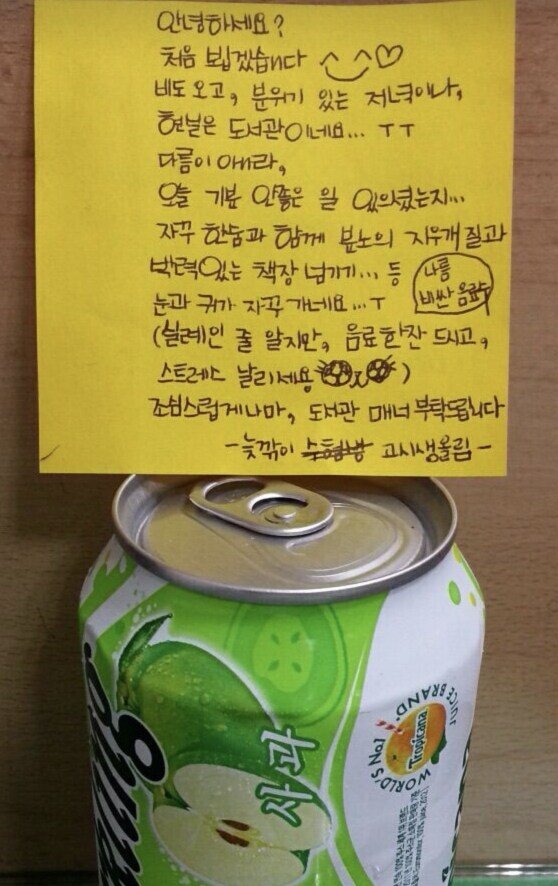 안녕하세요?
처음 뵙겠습니다 ^‿^♡
비도 오고, 분위기 있는 저녁이나,
현실은 도서관이네요... ㅜㅜ
다름이 아니라,
오늘 기분 안좋은 일 있으셨는지...
자꾸 한숨과 함께 분노의 지우개질과
박력있는 책장 넘기기... 등
눈과 귀가 자꾸 가네요...ㅜ
나름
비싼 음료수
(실례인 줄 알지만, 음료한잔 드시고,
스트레스 날리세용 )
조심스럽게나마, 도서관 매너 부탁드립니다
-늦깎이 고시생올림-
사과
WORLD'S No.1 JUICE BRAND.
Tropicana